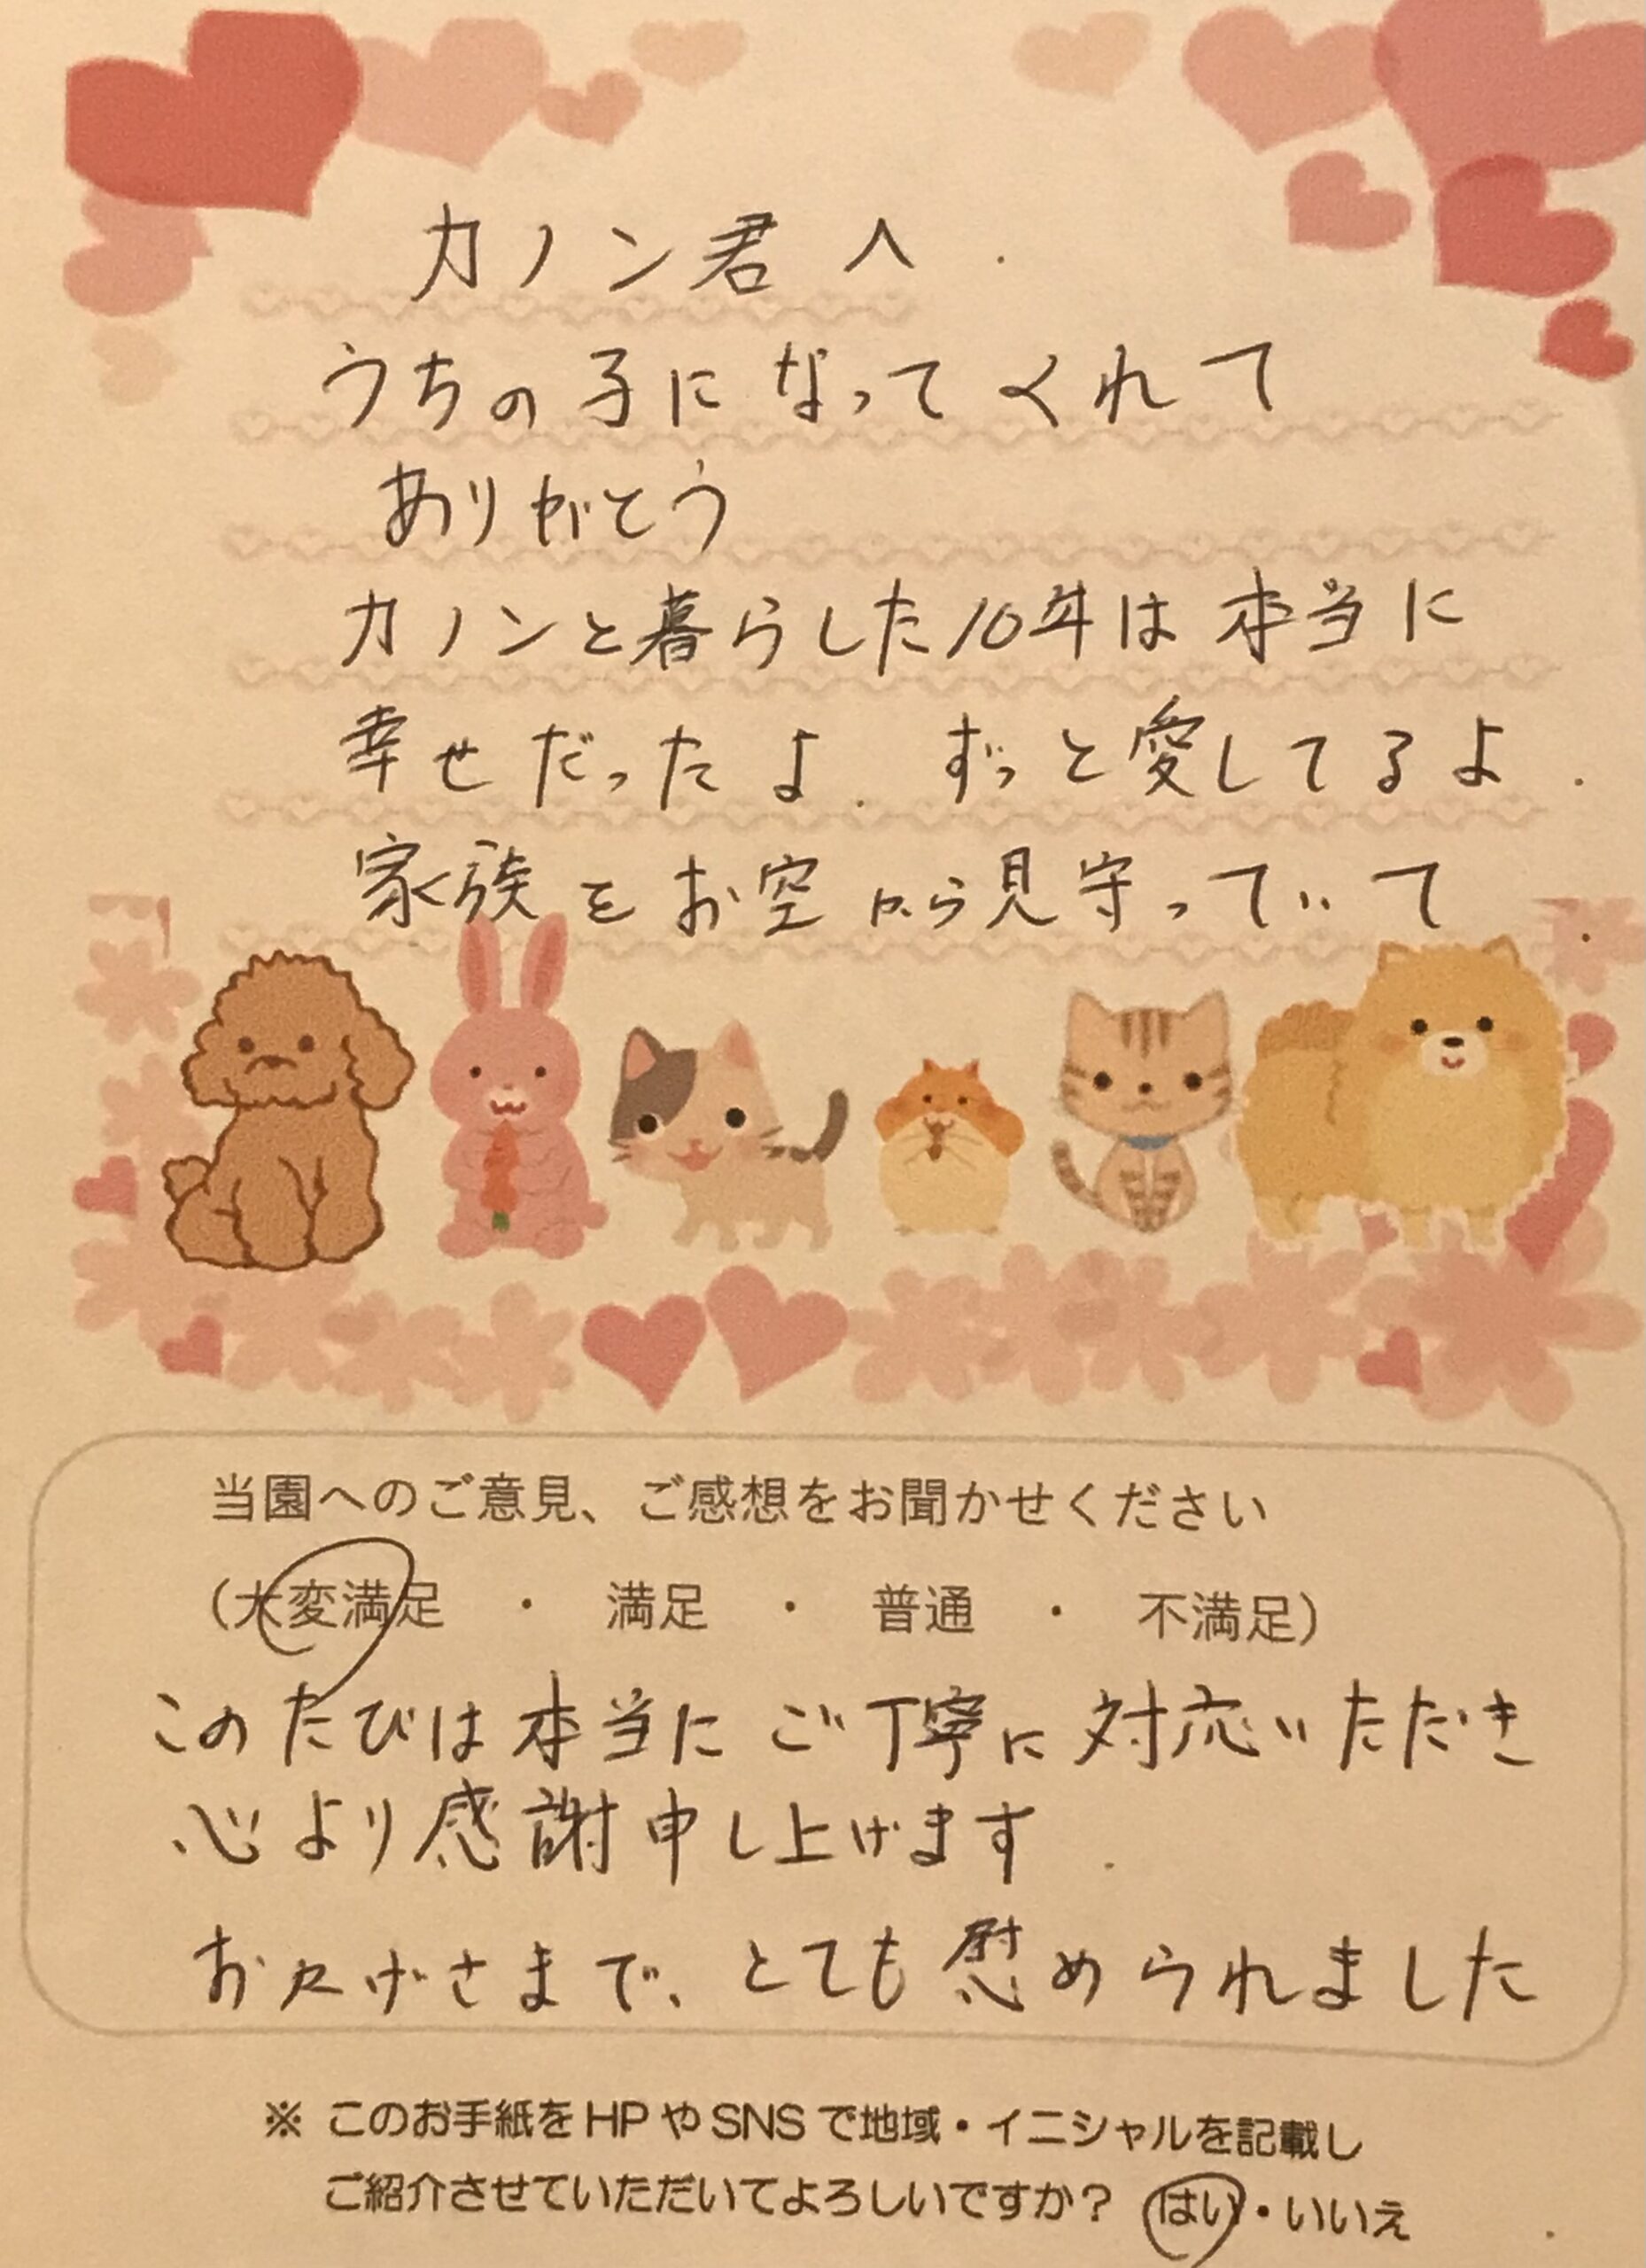 カノン君へ
うちの子になってくれて
ありがとう
カノンと暮らした10年は本当に
幸せだったよ. ずっと愛してるよ.
家族をお空から見守っていて
当園へのご意見、ご感想をお聞かせください
(大変満足 ・ 満足 ・ 普通 ・ 不満足)
このたびは本当にご丁寧に対応いただき
心より感謝申し上げます.
おかげさまで、とても慰められました
※ このお手紙をHPやSNSで地域・イニシャルを記載し
ご紹介させていただいてよろしいですか? はい・いいえ